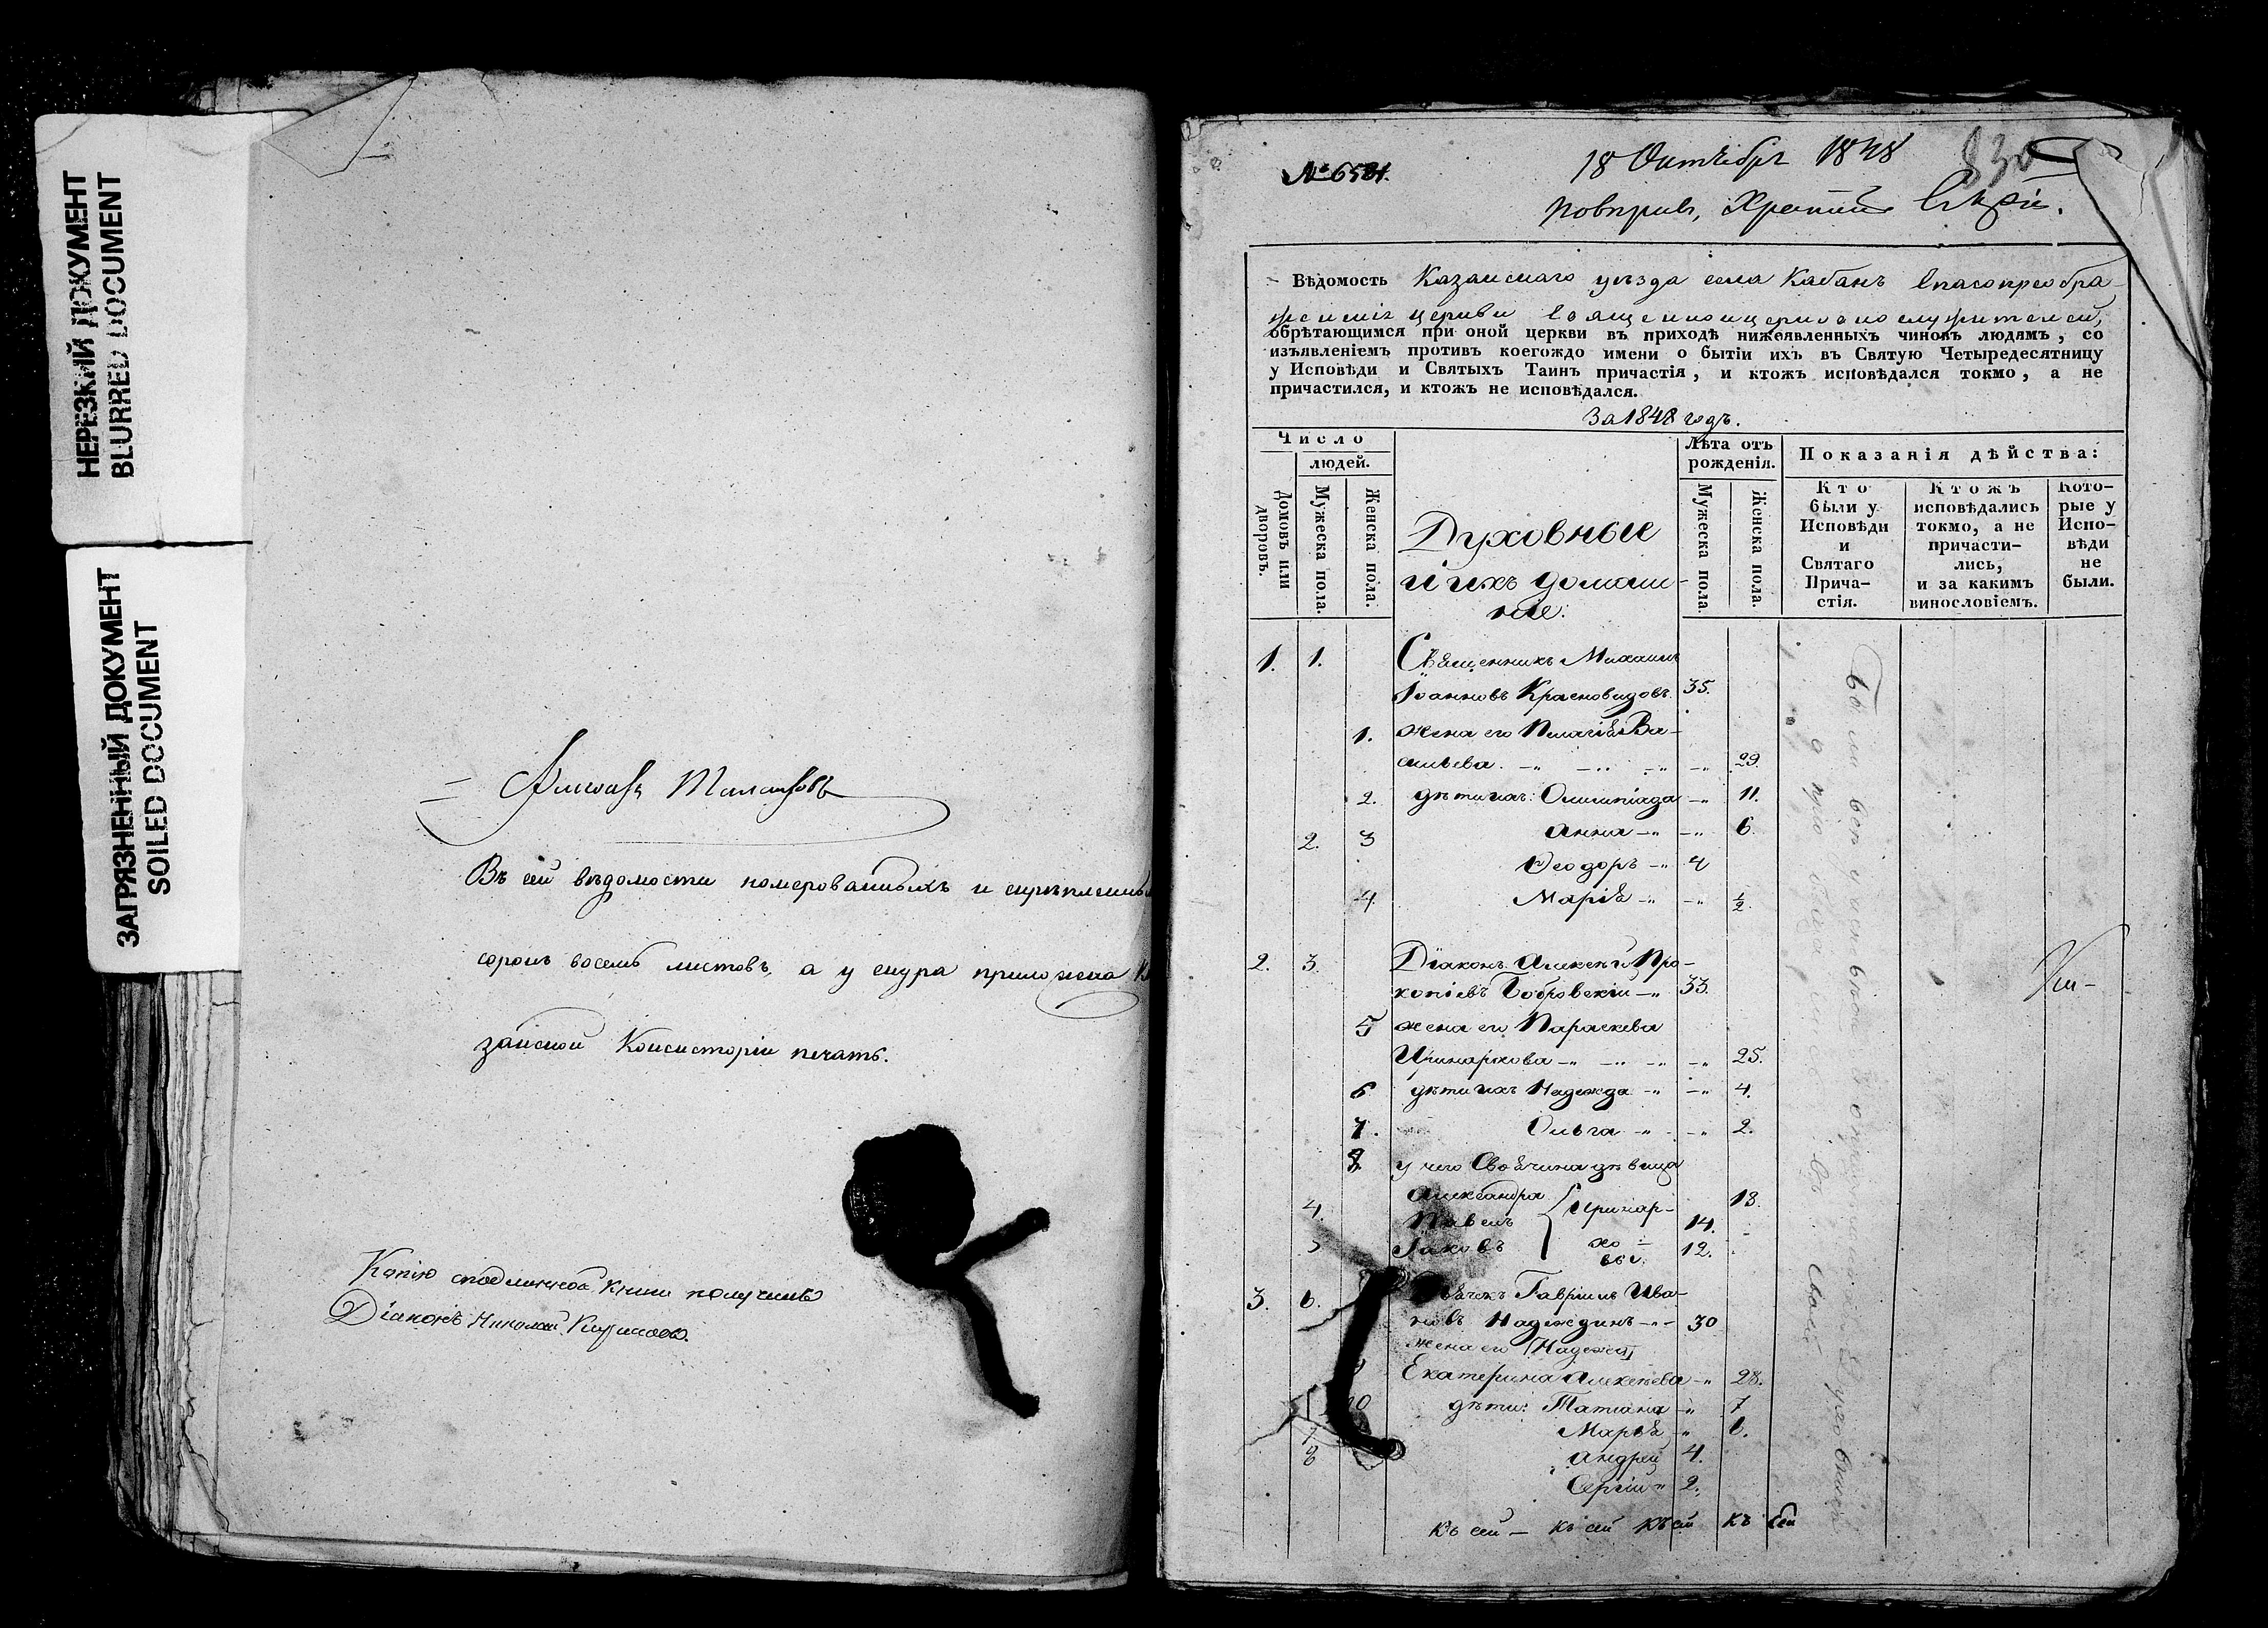 НЕРЕЗКИЙ ДОКУМЕНТ
BLURRED DOCUMENT
ЗАГРЯЗНЕННЫЙ ДОКУМЕНТ
SOILED DOCUMENT
Въ сей вѣдомости номерованныхъ и скрѣпленных
сорокъ восемь листовъ, а у снура приложена К
занской Консисторіи печать.
Копію сподлинной книги получилъ
Діаконъ Николай
№ 6581.
18 Октября 1848
830
Вѣдомость Казанскаго уѣзда села Кабанъ Спасопреобра-
женскія церкви священноицерковнослужителей,
обрѣтающимся при оной церкви въ приходѣ нижеявленныхъ чиновъ людямъ, со
изъявленіемъ противъ коегождо имени о бытіи ихъ въ Святую Четыредесятницу
у Исповѣди и Святыхъ Таинъ причастія, и ктожъ исповѣдался токмо, а не
причастился, и ктожъ не исповѣдался.
За 1848 годъ.
Число
людей.
Домовъ или дворовъ.
Мужеска пола.
Женска пола.
Духовные
и ихъ домаш-
ніе:
Лѣта отъ
рожденія.
Мужеска пола.
Женска пола.
Показанія дѣйства:
Кто
были у
Исповѣди
и
Святаго
Прича-
стія.
Ктожъ
исповѣдались
токмо, а не
причасти-
лись,
и за какимъ
винословіемъ.
Кото-
рые у
Испо-
вѣди
не
были.
1. 1. Священникъ Михаилъ
Іоанновъ Красновидовъ 35.
1. жена его Пелагія Ва-
сильева 29.
2. дѣти ихъ: Олимпіада 11.
2. 3 Анна 6.
Ѳеодоръ 4
4. Марія ½.
2. 3. Діаконъ Алексѣй Про-
копіевъ Бобровскій 33.
5 жена его Параскева
Иринархова 25.
6 дѣти ихъ Надежда 4.
7. Ольга 2.
8. у него Своячина дѣвица
Александра Иринар- 18.
4. Павелъ 14.
5 Іаковъ хо- 12.
вы
3. 6. Гавріилъ Ива-
новъ Надеждинъ 30
жена его
Екатерина Алексѣева 28.
10 дѣти: Татіана 7
Марья 6.
7 Андрей 4.
8 Сергій 2.
къ сей — къ сей къ сей къ сей